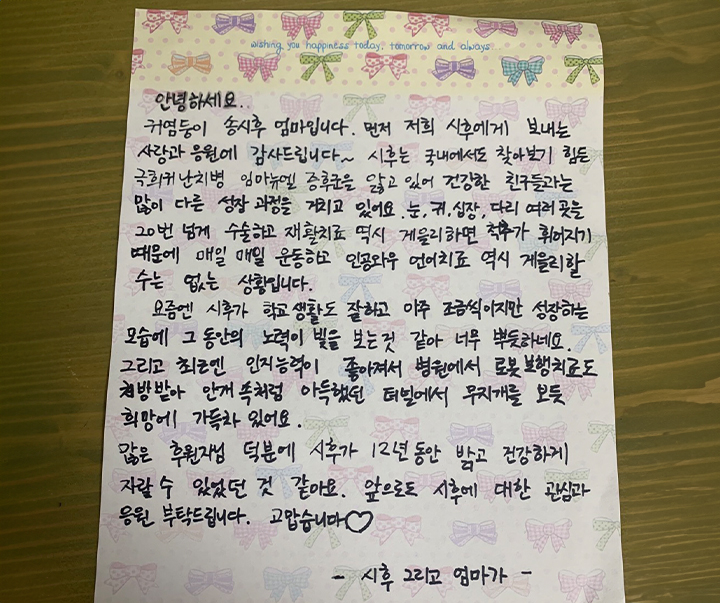 wishing you happiness today, tomorrow and always
안녕하세요..
귀염둥이 송시후 엄마입니다. 먼저 저희 시후에게 보내는
사랑과 응원에 감사드립니다~ 시후는 국내에서도 찾아보기 힘든
극희귀난치병 엄마뉴엘 증후군을 앓고 있어 건강한 친구들과는
많이 다른 성장 과정을 거치고 있어요. 눈, 귀, 심장, 다리 여러 곳을
20번 넘게 수술하고 재활치료 역시 게을리하면 척추가 휘어지기
때문에 매일 매일 운동하고 인공와우 언어치료 역시 게을리할
수는 없는 상황입니다.
요즘엔 시후가 학교생활도 잘하고 아주 조금씩이지만 성장하는
모습에 그 동안의 노력이 빛을 보는것 같아 너무 뿌듯하네요.
그리고 최근엔 인지능력이 좋아져서 병원에서 로봇보행치료도
처방받아 안개 속처럼 아득했던 터널에서 무지개를 보듯
희망에 가득차 있어요.
많은 후원자님 덕분에 시후가 12년 동안 밝고 건강하게
자랄 수 있었던 것 같아요. 앞으로도 시후에 대한 관심과
응원 부탁드립니다. 고맙습니다♡
- 시후 그리고 엄마가 -